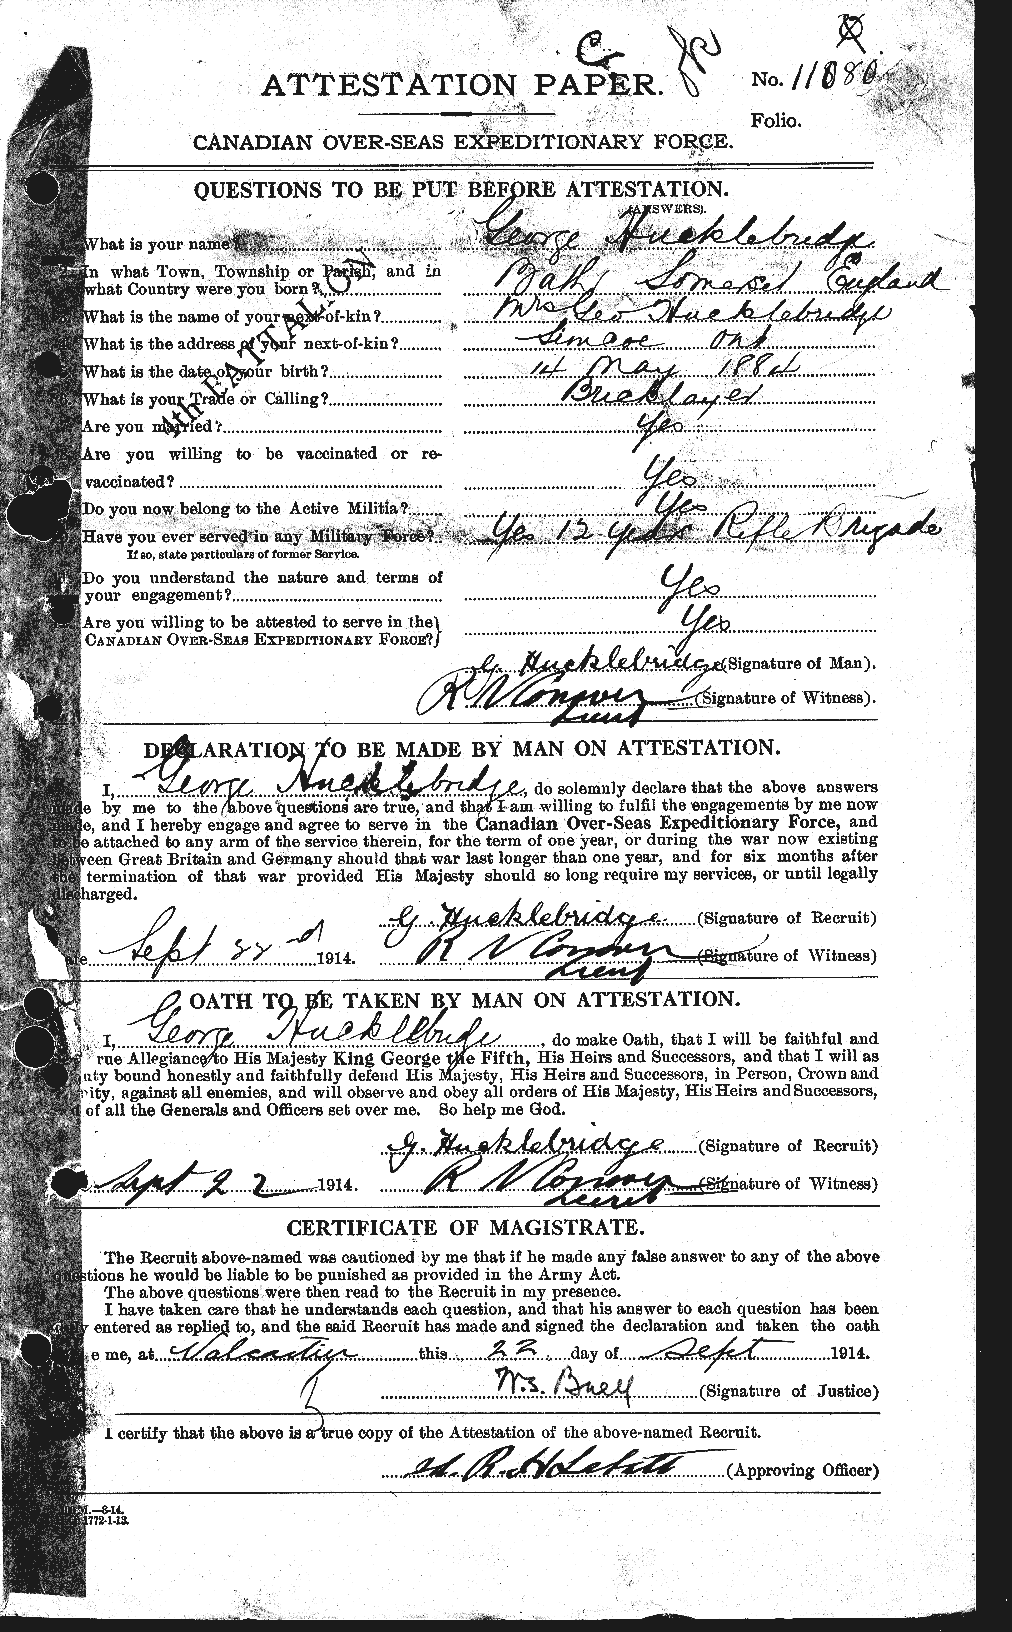 C
ATTESTATION PAPER.
No.
Folio.
CANADIAN OVER-SEAS EXPEDITIONARY FORCE.
QUESTIONS TO BE PUT BEFORE ATTESTATION.
(ANSWERS).
What is your name? George Hucklebridge
In what Town, Township or Parish, and in
what Country were you born? Bath Somerset England
What is the name of your next-of-kin? Mrs Geo Hucklebridge
What is the address of your next-of-kin? Simcoe Ont
What is the date of your birth? 14 May 1884
What is your Trade or Calling? Bricklayer
4th BATTALION
Are you married? Yes
Are you willing to be vaccinated or re-
vaccinated? Yes
Do you now belong to the Active Militia? Yes
Have you ever served in any Military Force? Yes 12 years Rifle Brigade
If so, state particulars of former Service.
Do you understand the nature and terms of
your engagement? Yes
Are you willing to be attested to serve in the
CANADIAN OVER-SEAS EXPEDITIONARY FORCE? Yes
G. Hucklebridge (Signature of Man).
R V Conover (Signature of Witness).
Lieut
DECLARATION TO BE MADE BY MAN ON ATTESTATION.
I, George Hucklebridge, do solemnly declare that the above answers
by me to the above questions are true, and that I am willing to fulfil the engagements by me now
and I hereby engage and agree to serve in the Canadian Over-Seas Expeditionary Force, and
be attached to any arm of the service therein, for the term of one year, or during the war now existing
between Great Britain and Germany should that war last longer than one year, and for six months after
the termination of that war provided His Majesty should so long require my services, or until legally
discharged.
G. Hucklebridge (Signature of Recruit)
Sept 22nd 1914. R V Conover (Signature of Witness)
Lieut
OATH TO BE TAKEN BY MAN ON ATTESTATION.
I, George Hucklebridge, do make Oath, that I will be faithful and
rue Allegiance to His Majesty King George the Fifth, His Heirs and Successors, and that I will as
uty bound honestly and faithfully defend His Majesty, His Heirs and Successors, in Person, Crown and
ity, against all enemies, and will observe and obey all orders of His Majesty, His Heirs and Successors,
of all the Generals and Officers set over me. So help me God.
G. Hucklebridge (Signature of Recruit)
Sept 22 1914. R V Conover (Signature of Witness)
Lieut
CERTIFICATE OF MAGISTRATE.
The Recruit above-named was cautioned by me that if he made any false answer to any of the above
questions he would be liable to be punished as provided in the Army Act.
The above questions were then read to the Recruit in my presence.
I have taken care that he understands each question, and that his answer to each question has been
entered as replied to, and the said Recruit has made and signed the declaration and taken the oath
e me, at Valcartier this 22 day of Sept 1914.
W.S. Buell (Signature of Justice)
I certify that the above is a true copy of the Attestation of the above-named Recruit.
(Approving Officer)
M.—8-14.
1772-1-13.